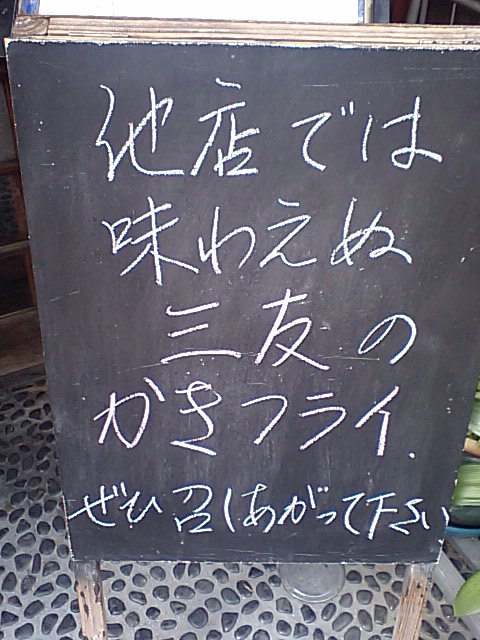 他店では
味わえぬ
三友の
かきフライ.
ぜひ召しあがって下さい